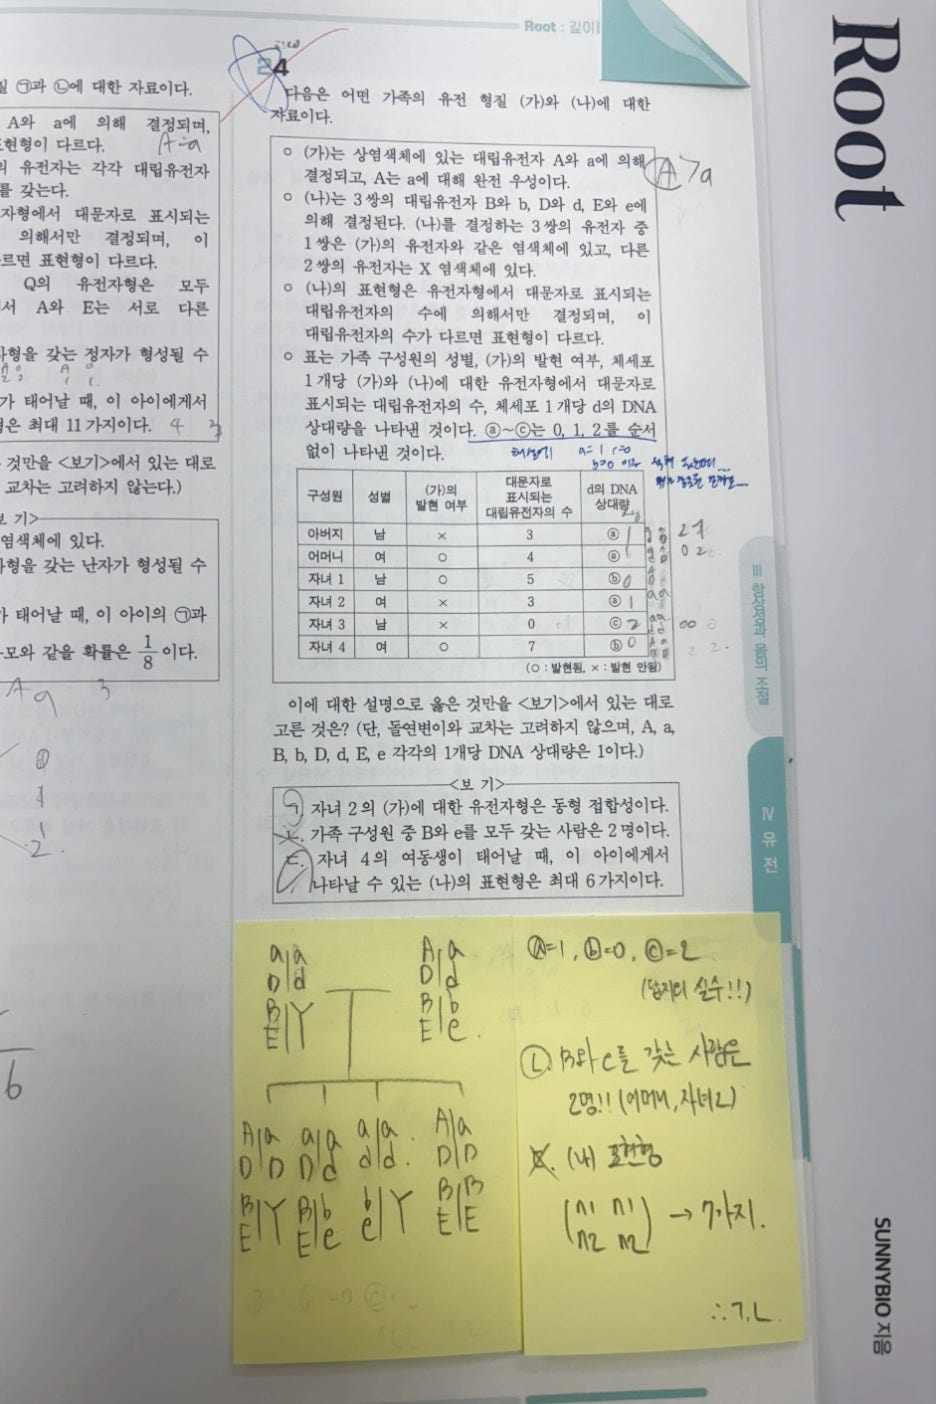 Root : 깊이
24
다음은 어떤 가족의 유전 형질 (가)와 (나)에 대한
자료이다.
○ (가)는 상염색체에 있는 대립유전자 A와 a에 의해
결정되고, A는 a에 대해 완전 우성이다.
A>a
○ (나)는 3쌍의 대립유전자 B와 b, D와 d, E와 e에
의해 결정된다. (나)를 결정하는 3쌍의 유전자 중
1쌍은 (가)의 유전자와 같은 염색체에 있고, 다른
2쌍의 유전자는 X 염색체에 있다.
○ (나)의 표현형은 유전자형에서 대문자로 표시되는
대립유전자의 수에 의해서만 결정되며, 이
대립유전자의 수가 다르면 표현형이 다르다.
○ 표는 가족 구성원의 성별, (가)의 발현 여부, 체세포
1개당 (가)와 (나)에 대한 유전자형에서 대문자로
표시되는 대립유전자의 수, 체세포 1개당 d의 DNA
상대량을 나타낸 것이다. ⓐ~ⓒ는 0, 1, 2를 순서
없이 나타낸 것이다.
구성원 성별 (가)의 발현 여부 대문자로 표시되는 대립유전자의 수 d의 DNA 상대량
아버지 남 × 3 ⓐ 1
어머니 여 ○ 4 ⓐ 1
자녀 1 남 ○ 5 ⓑ 0
자녀 2 여 × 3 ⓐ 1
자녀 3 남 × 0 ⓒ 2
자녀 4 여 ○ 7 ⓑ 0
(○ : 발현됨, × : 발현 안됨)
이에 대한 설명으로 옳은 것만을 <보기>에서 있는 대로
고른 것은? (단, 돌연변이와 교차는 고려하지 않으며, A, a,
B, b, D, d, E, e 각각의 1개당 DNA 상대량은 1이다.)
<보 기>
ㄱ. 자녀 2의 (가)에 대한 유전자형은 동형 접합성이다.
ㄴ. 가족 구성원 중 B와 e를 모두 갖는 사람은 2명이다.
ㄷ. 자녀 4의 여동생이 태어날 때, 이 아이에게서
나타날 수 있는 (나)의 표현형은 최대 6가지이다.
a|a A|a
D|d D|d
B|Y B|b
E| E|e
A|a a|a a|a A|a
D|D D|d d|d D|D
B|Y B|b b|Y B|B
E| E|e e| E|E
ⓐ=1, ⓑ=0, ⓒ=2
(답지의 실수!!)
ㄴ. B와 e를 갖는 사람은
2명!! (어머니, 자녀2)
ㄷ. (나) 표현형
→ 7가지.
∴ ㄱ, ㄴ
질 ㉠과 ㉡에 대한 자료이다.
A와 a에 의해 결정되며,
표현형이 다르다.
A=a
의 유전자는 각각 대립유전자
를 갖는다.
자형에서 대문자로 표시되는
의해서만 결정되며, 이
르면 표현형이 다르다.
Q의 유전자형은 모두
서 A와 E는 서로 다른
자형을 갖는 정자가 형성될 수
가 태어날 때, 이 아이에게서
형은 최대 11가지이다.
것만을 <보기>에서 있는 대로
교차는 고려하지 않는다.)
보 기>
염색체에 있다.
자형을 갖는 난자가 형성될 수
가 태어날 때, 이 아이의 ㉠과
부모와 같을 확률은 1/8 이다.
Aa 3
Ⅲ 항상성과 몸의 조절
Ⅳ 유전
Root
SUNNYBIO 지음